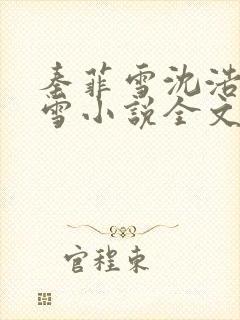 秦菲雪沈浩
雪小说全文
官程东